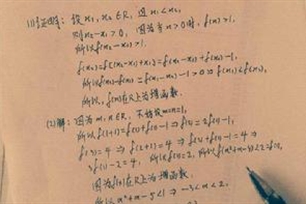 (1)证明：设x₁,x₂∈R，且x₁<x₂,
则x₂-x₁>0，因为当x>0时，f(x)>1,
所以f(x₂-x₁)>1.
f(x₂)=f[(x₂-x₁)+x₁]=f(x₂-x₁)+f(x₁)-1,
所以f(x₂)-f(x₁)=f(x₂-x₁)-1>0⇒f(x₁)<f(x₂),
所以，f(x)在R上为增函数.
(2)解：因为m,n∈R，不妨设m=n=1,
所以f(1+1)=f(1)+f(1)-1⇒f(2)=2f(1)-1,
f(3)=4⇒f(2+1)=4⇒f(2)+f(1)-1=4⇒
3f(1)-2=4，所以f(1)=2，所以f(a²+a-5)<2=f(1),
因为f(x)在R上为增函数，
所以a²+a-5<1⇒-3<a<2.